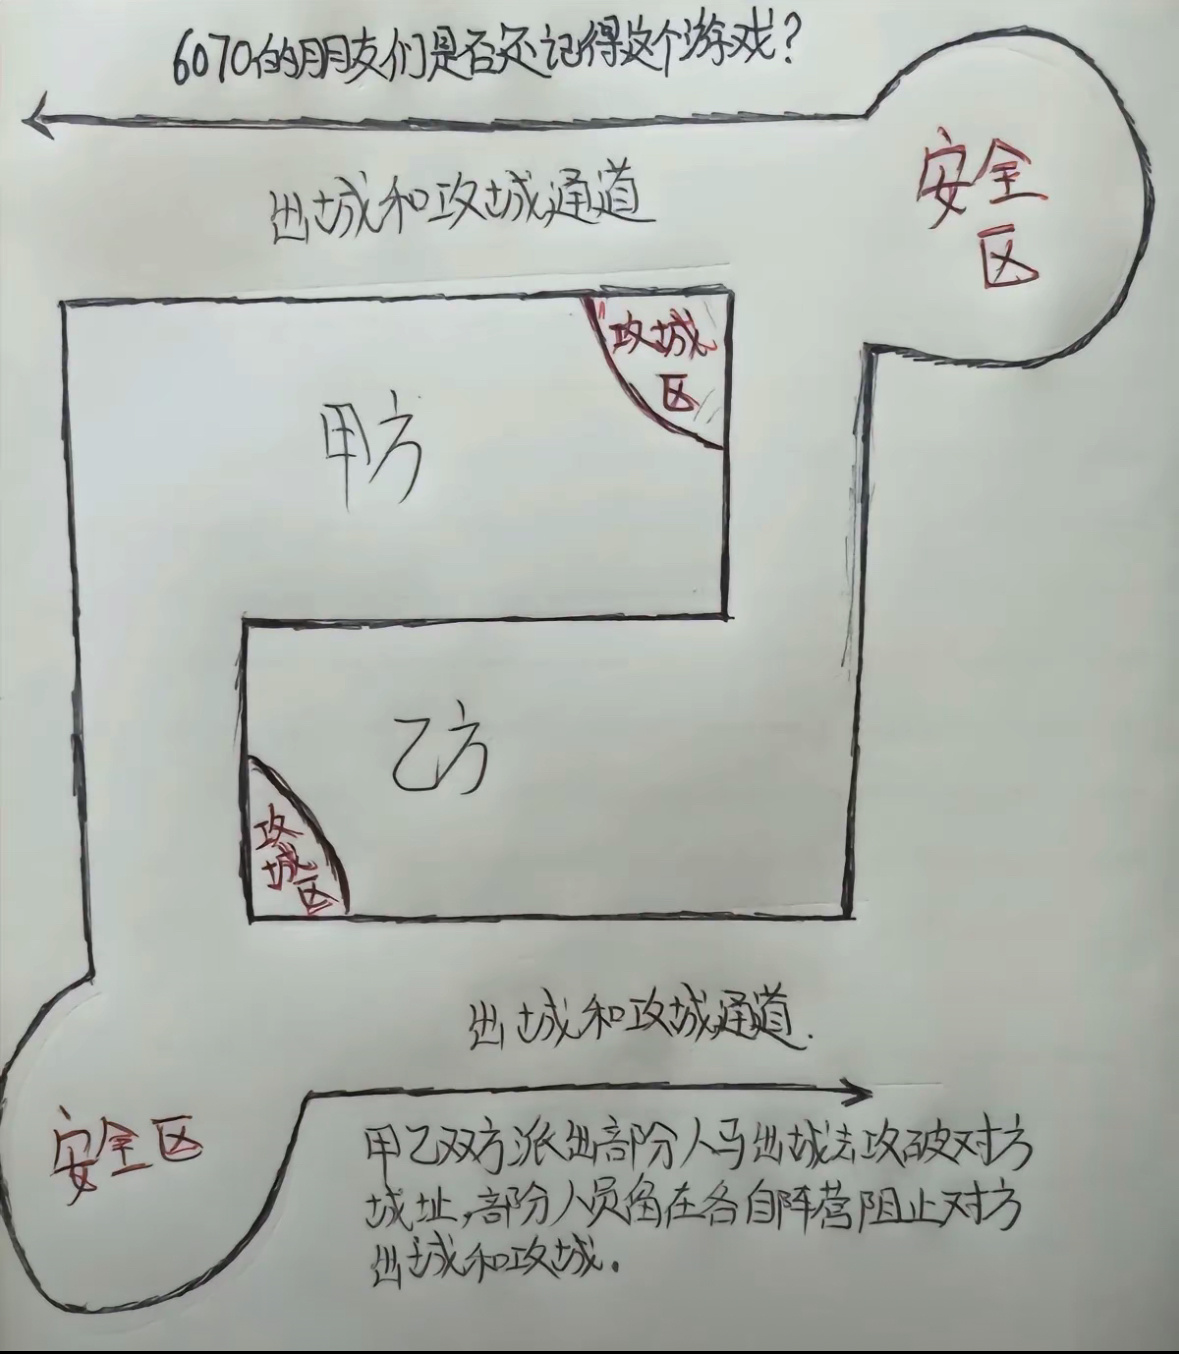 6070的朋友们是否还记得这个游戏?
安全
区
出城和攻城通道
攻城
区
甲方
乙方
攻
城
区
出城和攻城通道.
安全区
甲乙双方派出部分人马出城去攻破对方
城址,部分人员留在各自阵营阻止对方
出城和攻城.